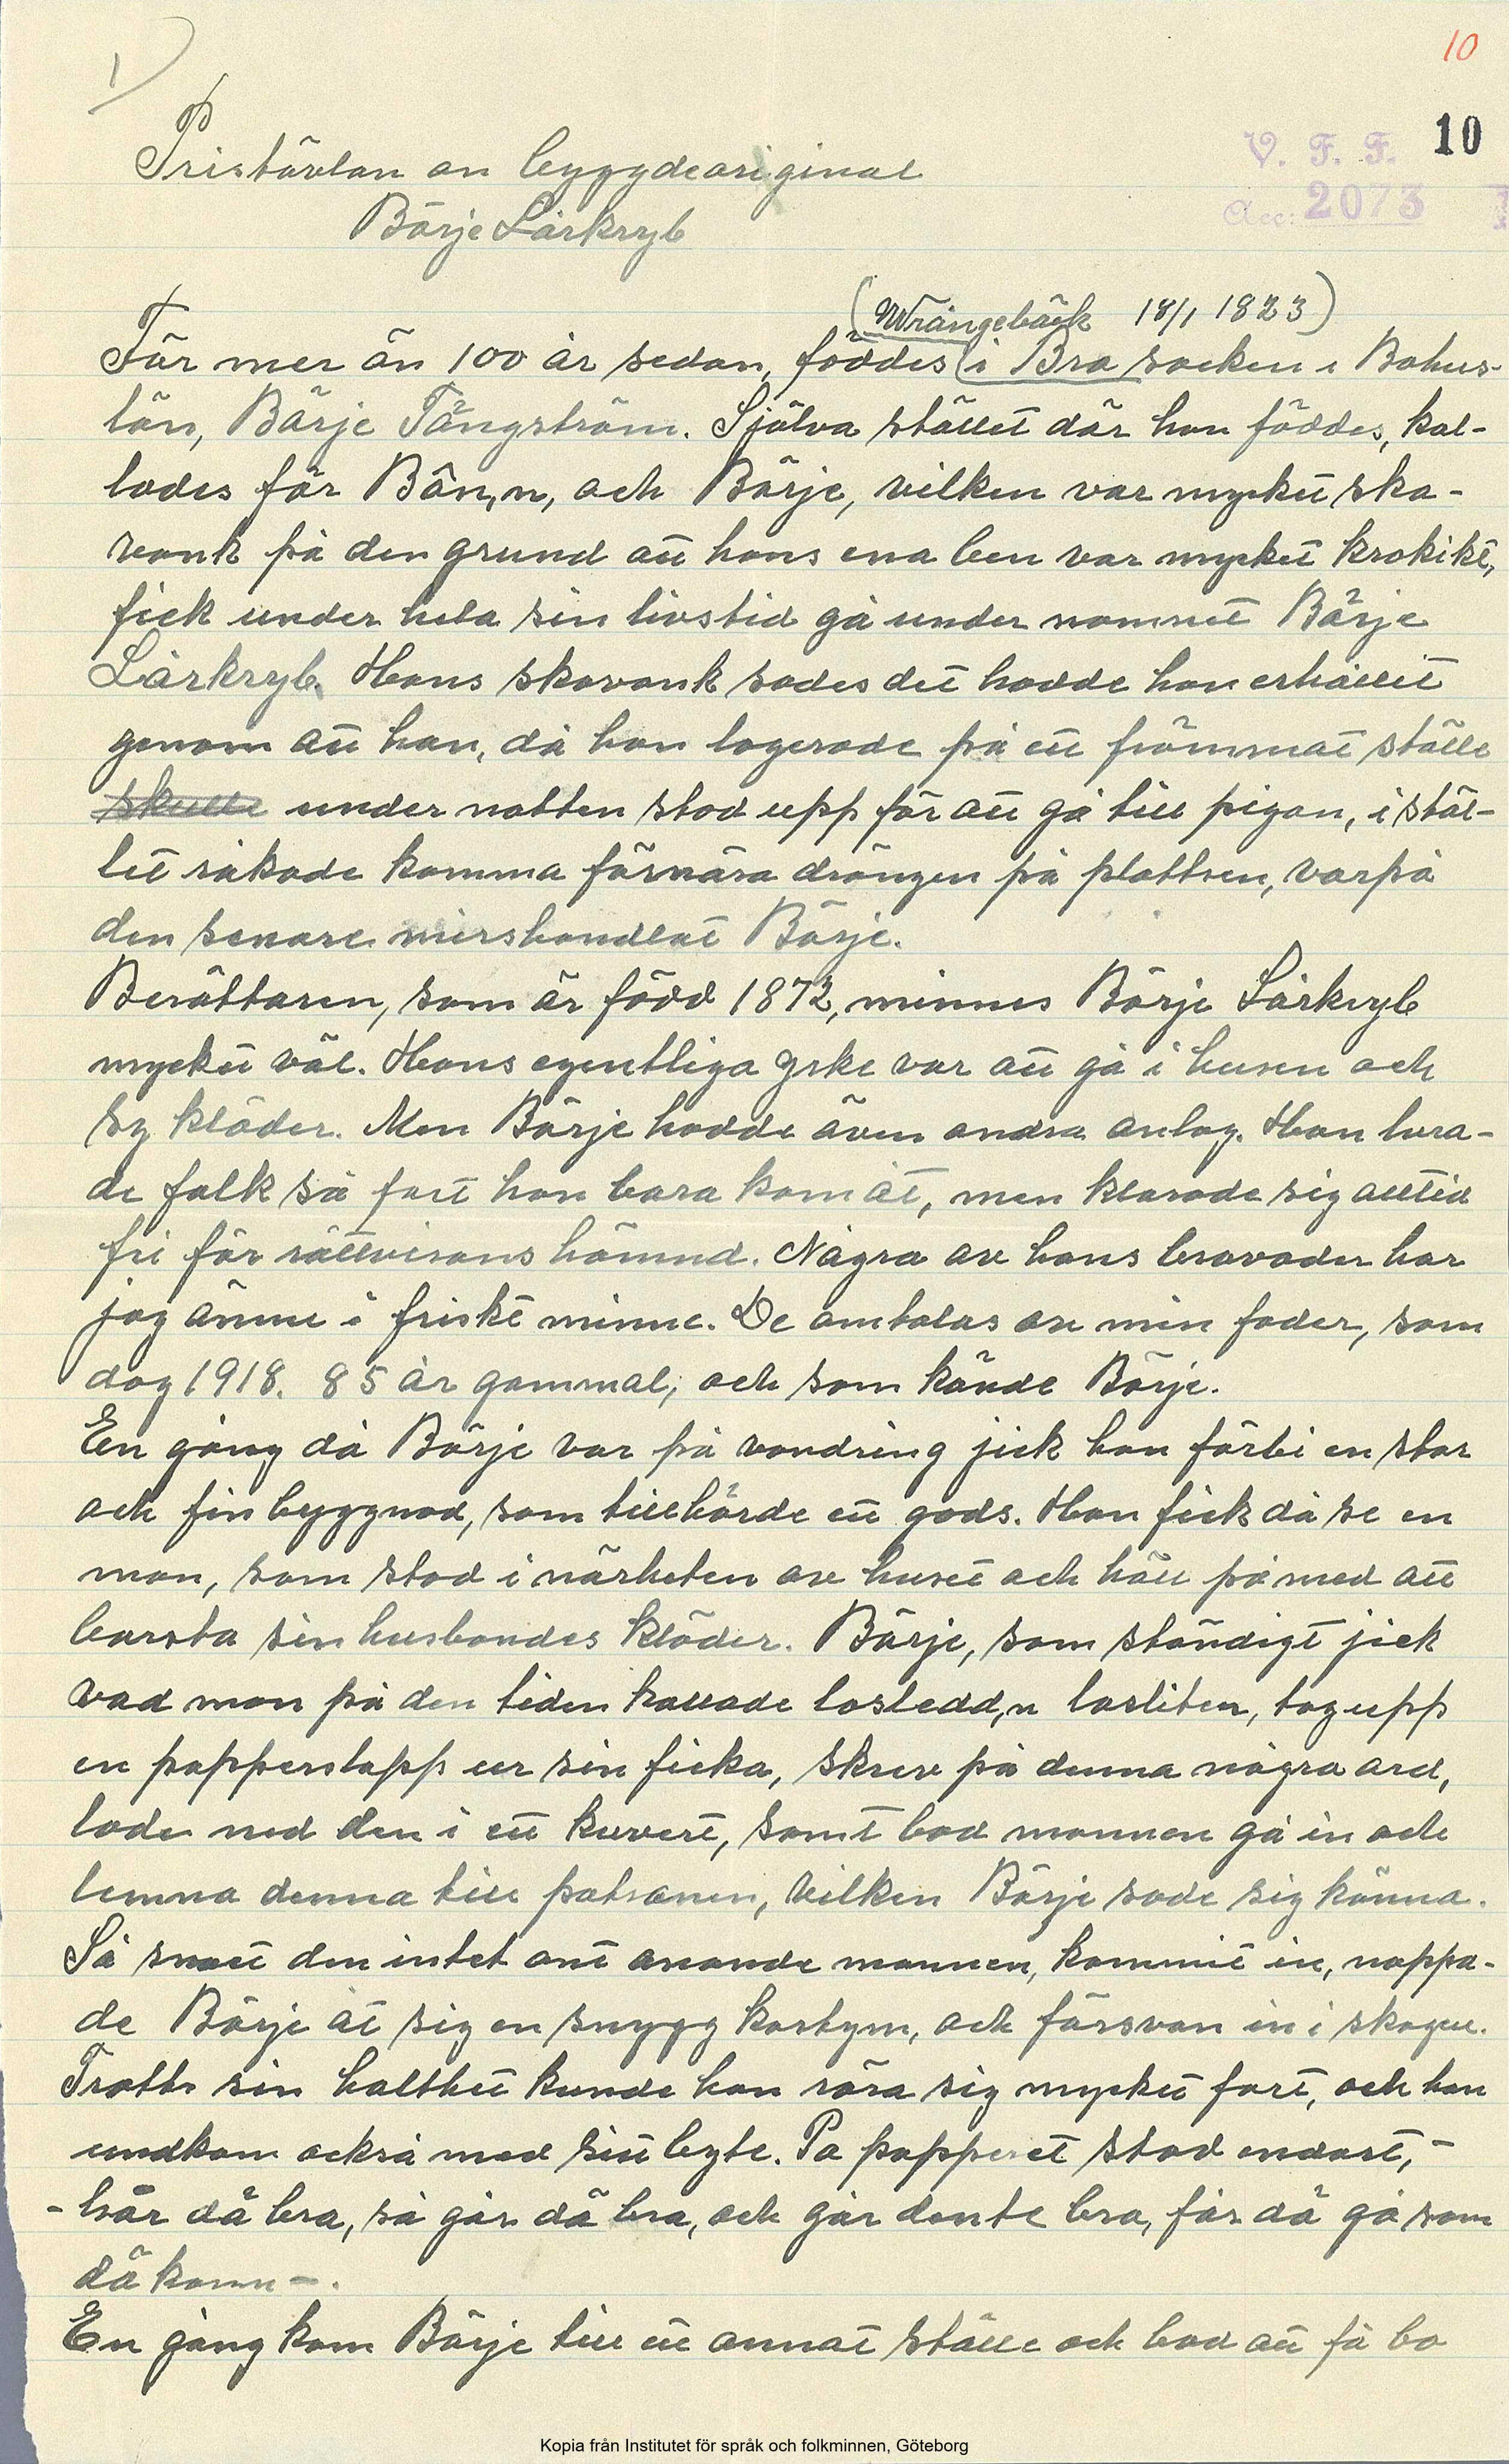 1)
10
10
V. F. F.
Acc: 2073
Pristävlan on byggdeoriginal
Börje Lårkryb
(Wrängebäck 18/1 1823)
För mer än 100 år sedan, föddes (i Bro socken i Bohus-
län, Börje Tångström. Själva stället där han föddes, kal-
lades för Bån,n, och Börje, vilken var mycket ska-
vank på den grund att hans ena ben var mycket krokikt,
fick under hela sin livstid gå under namnet Börje
Lårkryb. Hans skavank sades det hadde han erhållit
genom att han, då han logerade på ett främmat ställe
skulle under natten stod upp för att gå till pigan, i stäl-
let råkade komma förnära drängen på plattsen, varpå
den senare mershandlat Börje.
Berättaren, som är född 1872, minnes Börje Lårkryb
mycket väl. Hans egentliga yrke var att gå i husen och
sy kläder. Men Börje hadde även andra anlag. Han lura-
de falk så fort han bara kom åt, men klarade sig alltid
fri för rättvisans hämnd. Några av hans bravader har
jag ännu i friskt minne. De omtalas av min fader, som
dog 1918. 85 år gammal, och som kände Börje.
En gång då Börje var på vandring jick han förbi en stor
och fin byggnad, som tillhörde ett gods. Han fick då se en
man, som stod i närheten av huset och höll på med att
borsta sin husbondes kläder. Börje, som ständigt jick
vad man på den tiden kallade losledd,n losliten, tog upp
en papperslapp ur sin ficka, skrev på denna några ord,
lade ned den i ett kuvert, samt bad mannen gå in och
lemna denna till patronen, vilken Börje sade sig känna.
Så snart den intet ont anande mannen, kommit in, nappa-
de Börje åt sig en snygg kostym, och försvan in i skogen.
Trotts sin halthet kunde han röra sig mycket fort, och han
undkom också med sitt byte. På papperet stod endast, -
- bär dä bra, så går dä bra, och går dente bra, får dä gå som
dä komm -.
En gång kom Börje till ett annat ställe och bad att få bo
Kopia från Institutet för språk och folkminnen, Göteborg